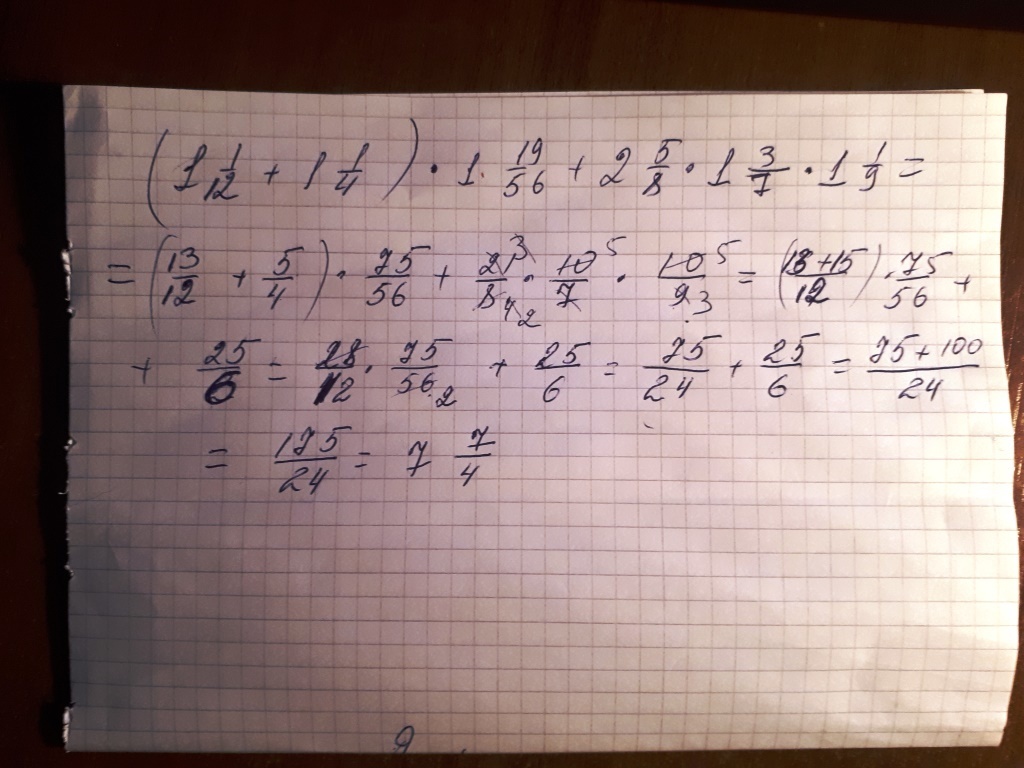 (1 1/12 + 1 1/4) · 1 19/56 + 2 5/8 · 1 3/7 · 1 1/9 =
= (13/12 + 5/4) · 75/56 + 21 3/8 4 2 · 10 5/7 · 10 5/9 3 = (13+15/12) · 75/56 +
+ 25/6 = 28/12 · 75/56 2 + 25/6 = 75/24 + 25/6 = 75+100/24
= 175/24 = 7 7/4
9